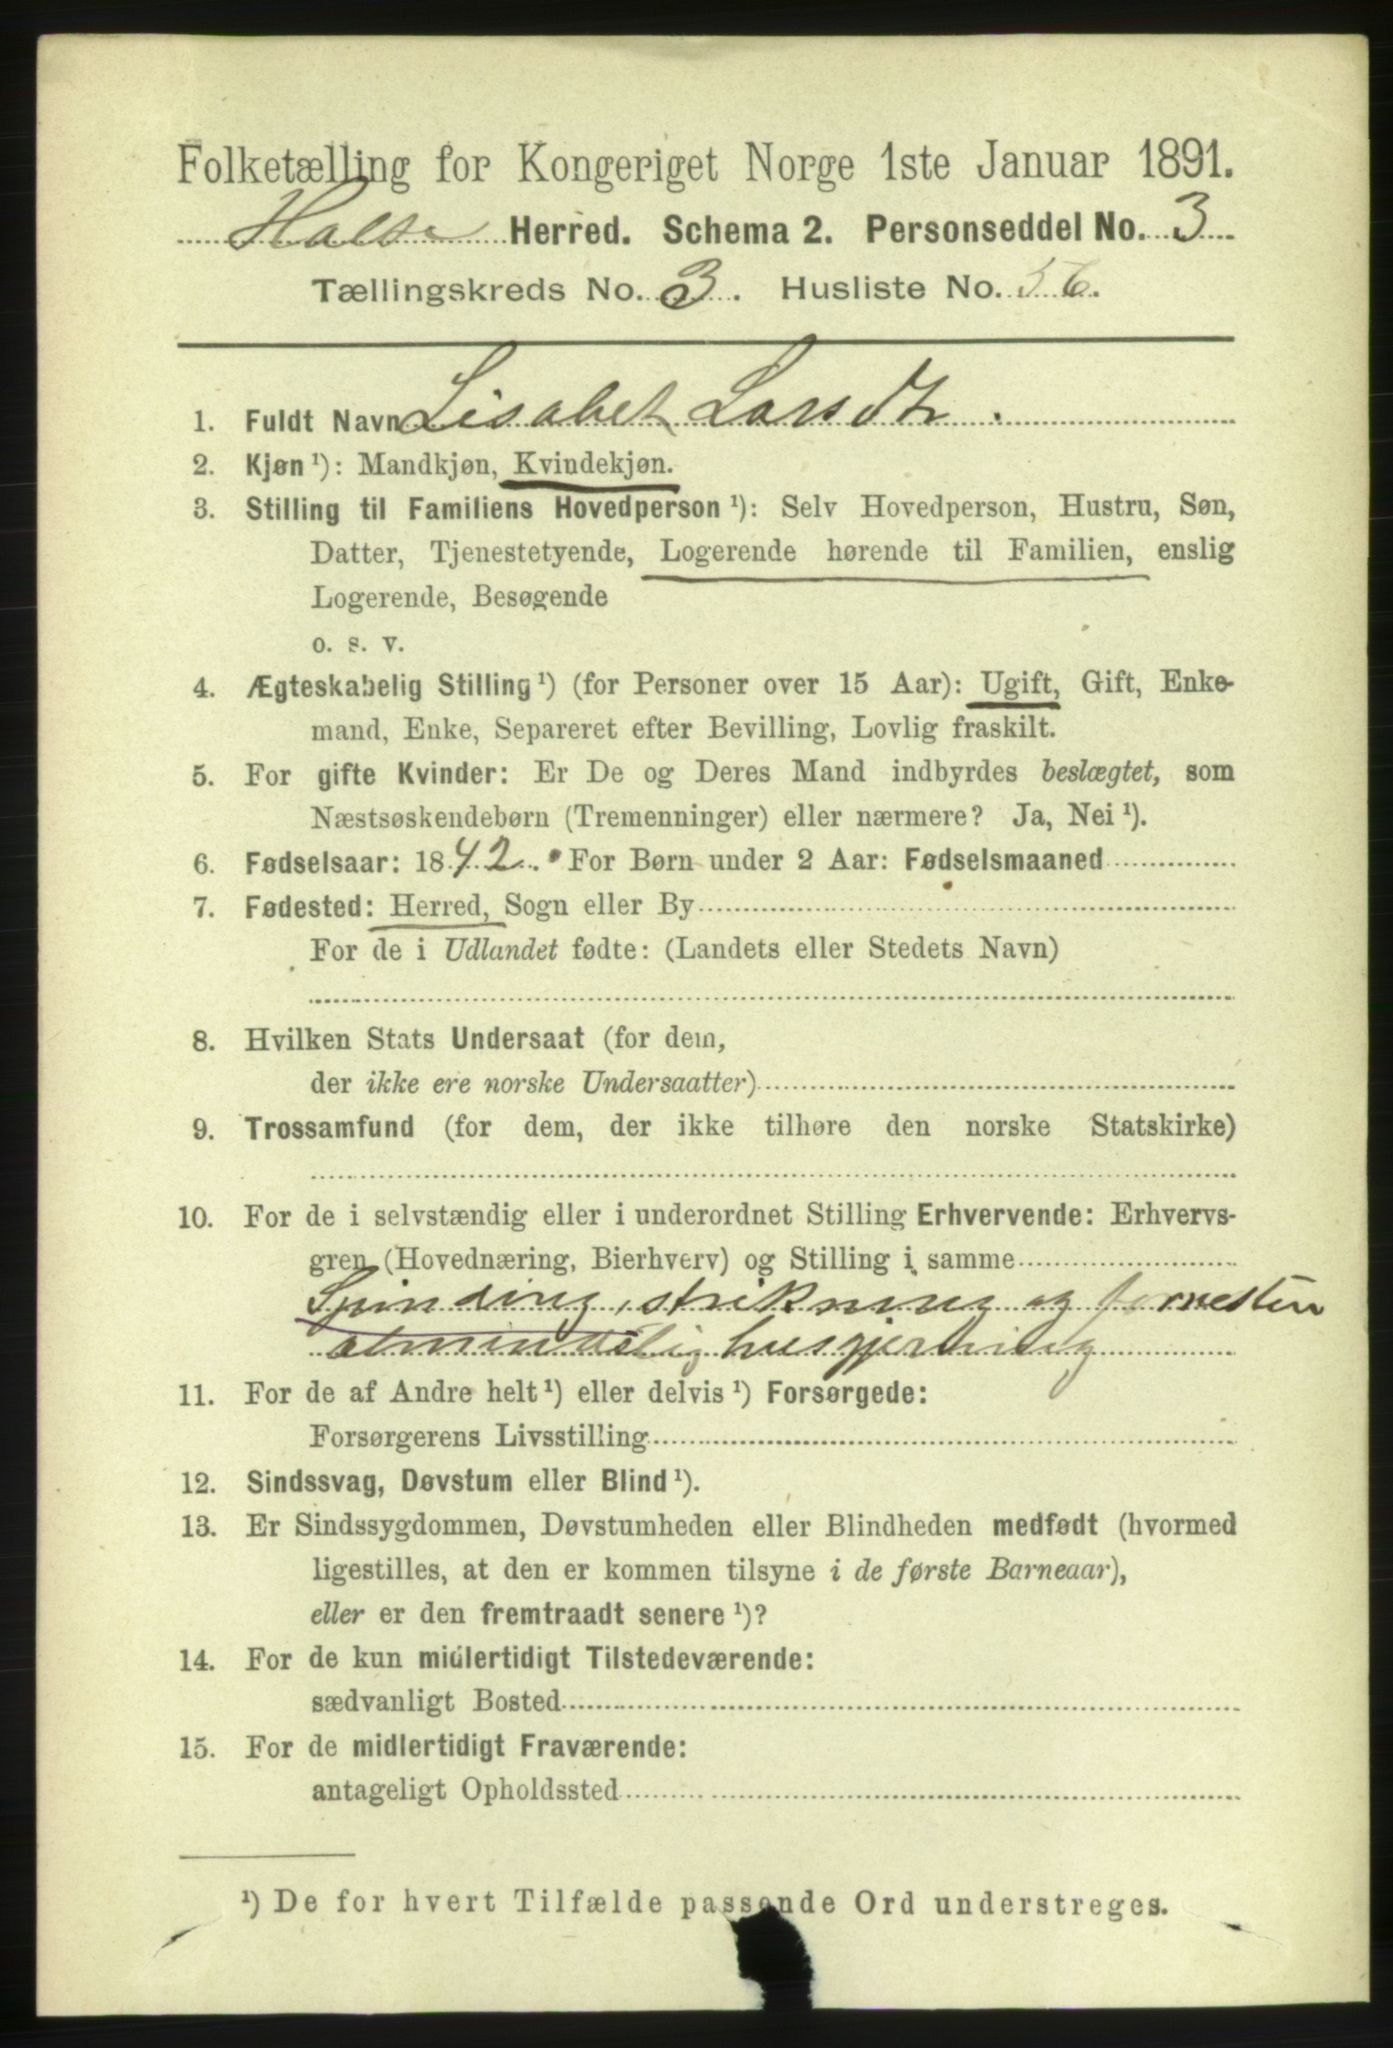 Folketælling for Kongeriget Norge 1ste Januar 1891.
Halse Herred. Schema 2. Personseddel No. 3
Tællingskreds No. 3. Husliste No. 56.
1. Fuldt Navn Lisabet Larsdtr.
2. Kjøn ¹): Mandkjøn, Kvindekjøn.
3. Stilling til Familiens Hovedperson ¹): Selv Hovedperson, Hustru, Søn,
Datter, Tjenestetyende, Logerende hørende til Familien, enslig
Logerende, Besøgende
o. s. v.
4. Ægteskabelig Stilling ¹) (for Personer over 15 Aar): Ugift, Gift, Enke-
mand, Enke, Separeret efter Bevilling, Lovlig fraskilt.
5. For gifte Kvinder: Er De og Deres Mand indbyrdes beslægtet, som
Næstsøskendebørn (Tremenninger) eller nærmere? Ja, Nei ¹).
6. Fødselsaar: 1842. For Børn under 2 Aar: Fødselsmaaned
7. Fødested: Herred, Sogn eller By
For de i Udlandet fødte: (Landets eller Stedets Navn)
8. Hvilken Stats Undersaat (for dem,
der ikke ere norske Undersaatter)
9. Trossamfund (for dem, der ikke tilhøre den norske Statskirke)
10. For de i selvstændig eller i underordnet Stilling Erhvervende: Erhvervs-
gren (Hovednæring, Bierhverv) og Stilling i samme
Spinding, strikning og fornesten
almindelig husgjerning
11. For de af Andre helt ¹) eller delvis ¹) Forsørgede:
Forsørgerens Livsstilling
12. Sindssvag, Døvstum eller Blind ¹).
13. Er Sindssygdommen, Døvstumheden eller Blindheden medfødt (hvormed
ligestilles, at den er kommen tilsyne i de første Barneaar),
eller er den fremtraadt senere ¹)?
14. For de kun midlertidigt Tilstedeværende:
sædvanligt Bosted
15. For de midlertidigt Fraværende:
antageligt Opholdssted
¹) De for hvert Tilfælde passende Ord understreges.